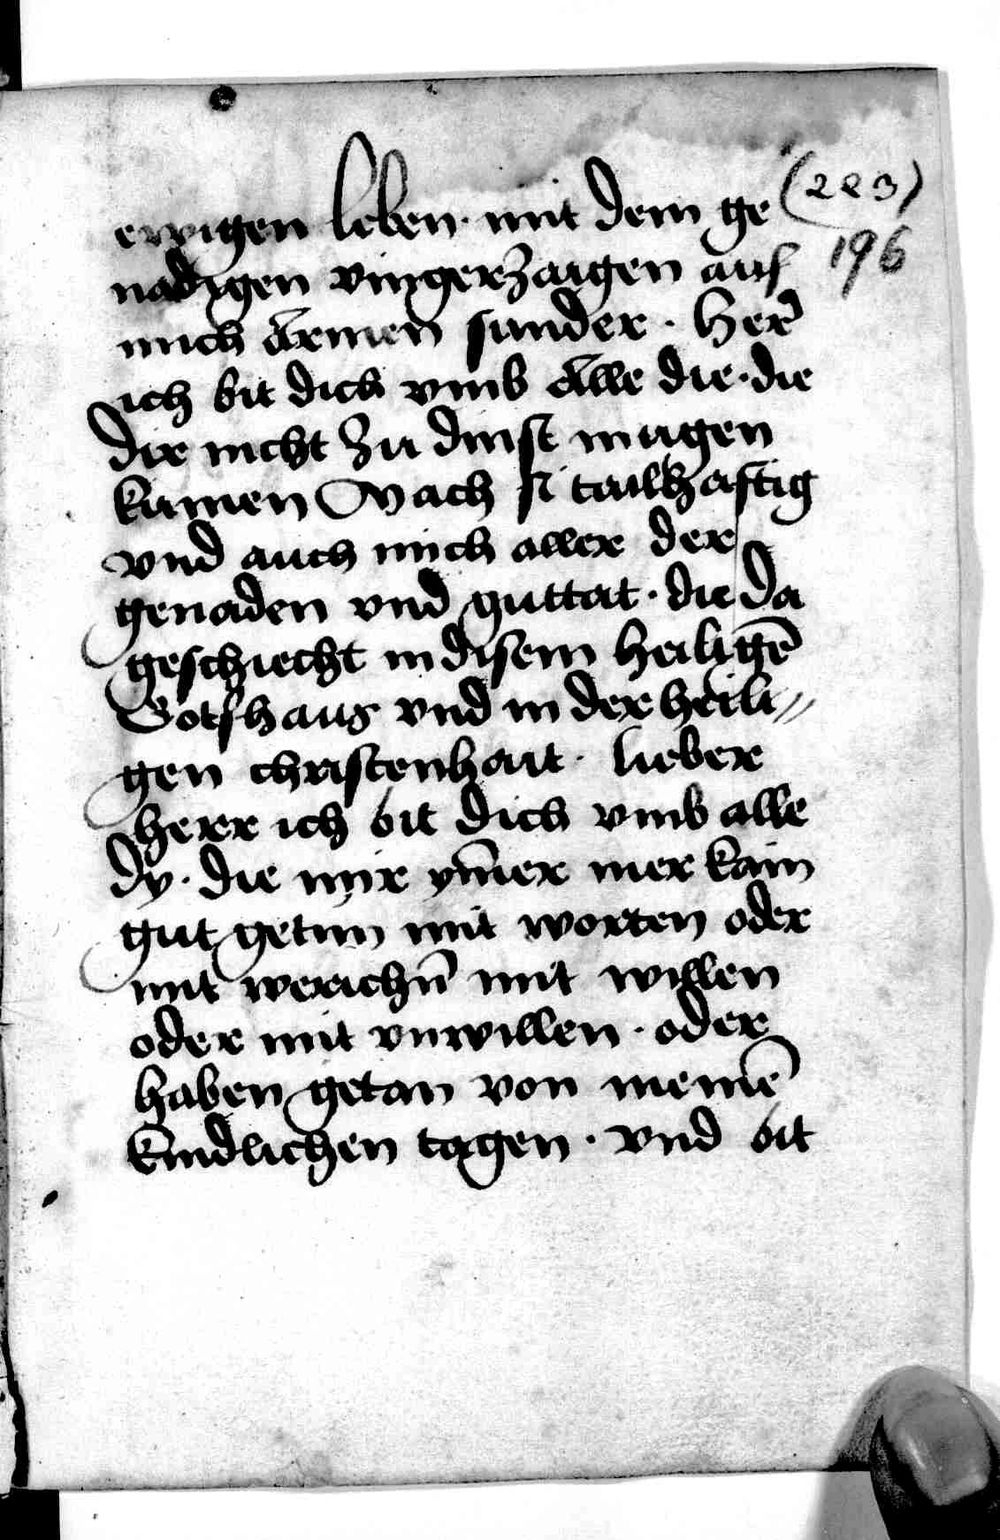 (223)
196
ewigen leben · mit dem ge
nadigen vingerzaigen auf
mich Armen sunder · Her̄
ich bit dich vmb Alle die · die
dir nicht zu dinst mugen
kumen Mach si tailhaftig
vnd auch mich aller der
genaden vnd guttat · die da
geschiecht in disem heiligē
Gotshaus vnd in der heili//
gen christenhait · lieber
Herr ich bit dich vmb alle
dy · die mir ym̄er mer kain
gut getun mit worten oder
mit werichn̄ mit willen
oder mit vnwillen · oder
haben getan von meinē
kindlichen tagen · vnd bit